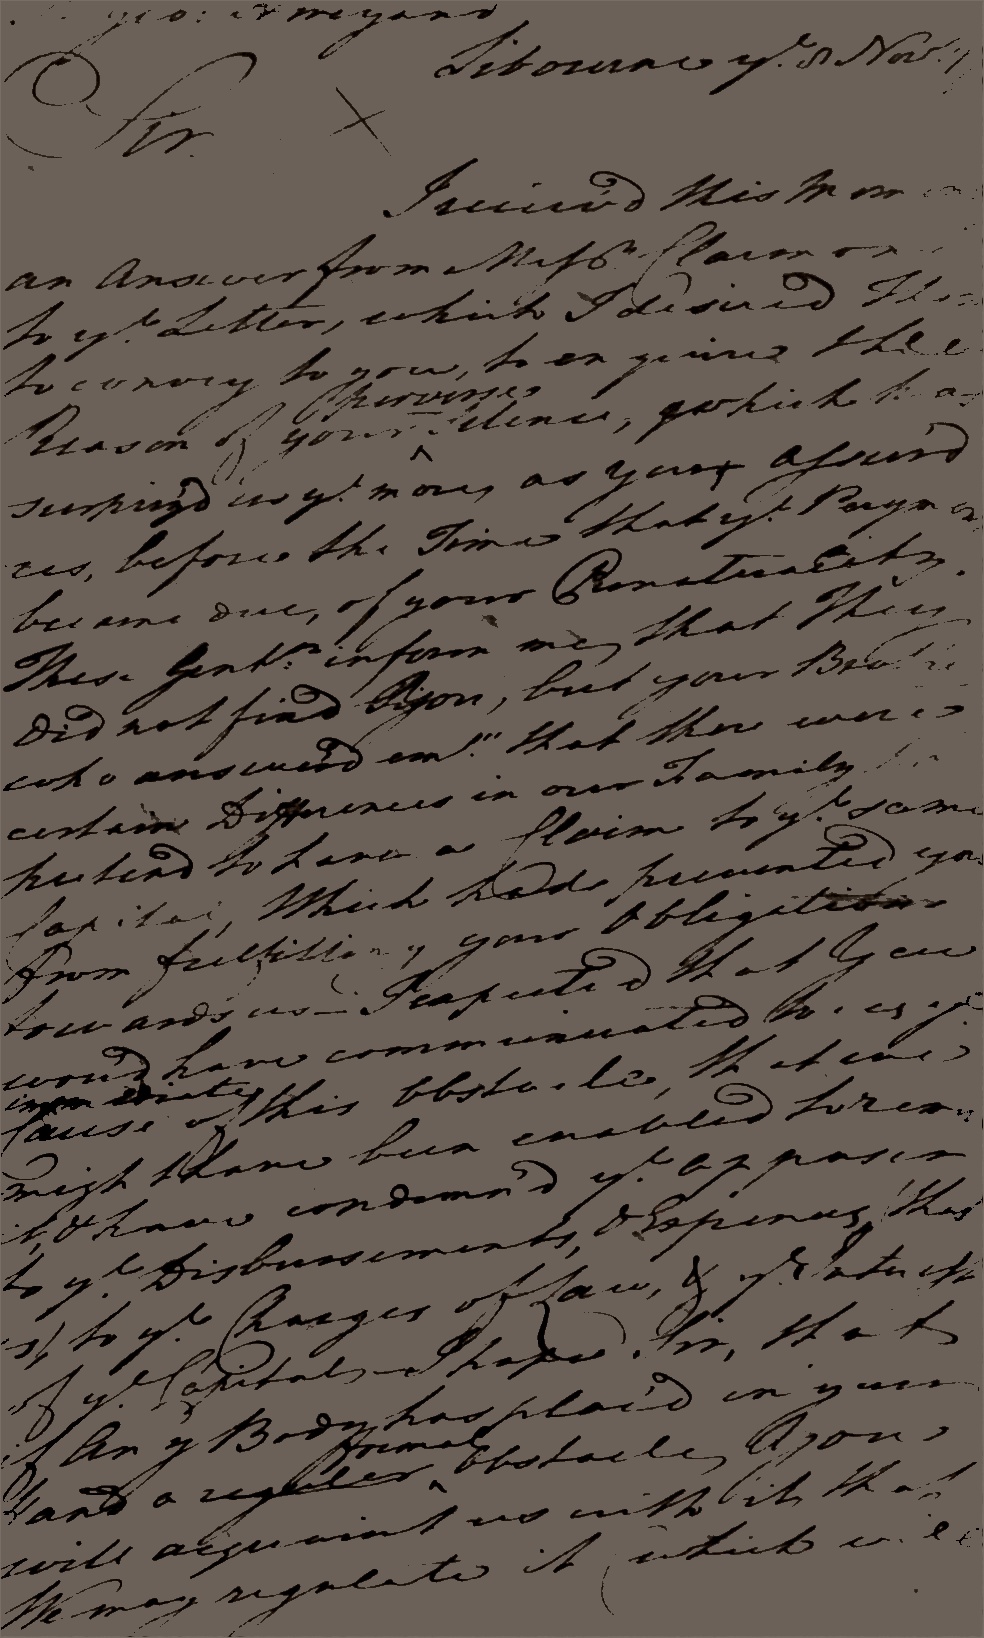 Geo: Armyand
Libourne ye. 8 Nov.
Sir
I receiv'd this Mom
an Answer from Messrs.
to yr. Letter, which I desired them
to convey to you, to enquire the
perverse
Reason of your Silence, which has
surpriz'd us ye. more, as you assur'd
us, before the Time that ye. Paym
became due, of your Punctuality.
These Gentn. inform me, that They
Did not find you, but your Brothe
who answer'd em "that there were
certain Differences in our Family
pretend to have a Claim to ye. same
Capital, Which had prevented you
from fulfilling your Obligations
towards us — I expected that You
wou'd have communicated to us ye.
immediate
Cause of this Obstacle, that we
might have been enabled to rem
it, & have condemn'd ye. opposer
to ye. Disbursements, & Expences, that
is, to ye. Charges of Law, & ye. Interest
of ye. Capital — I hope Sir, that
if Any Body has plac'd in your
formal
Hand a regular Obstacle, you
will acquaint us with it, that
We may regulate it (which will